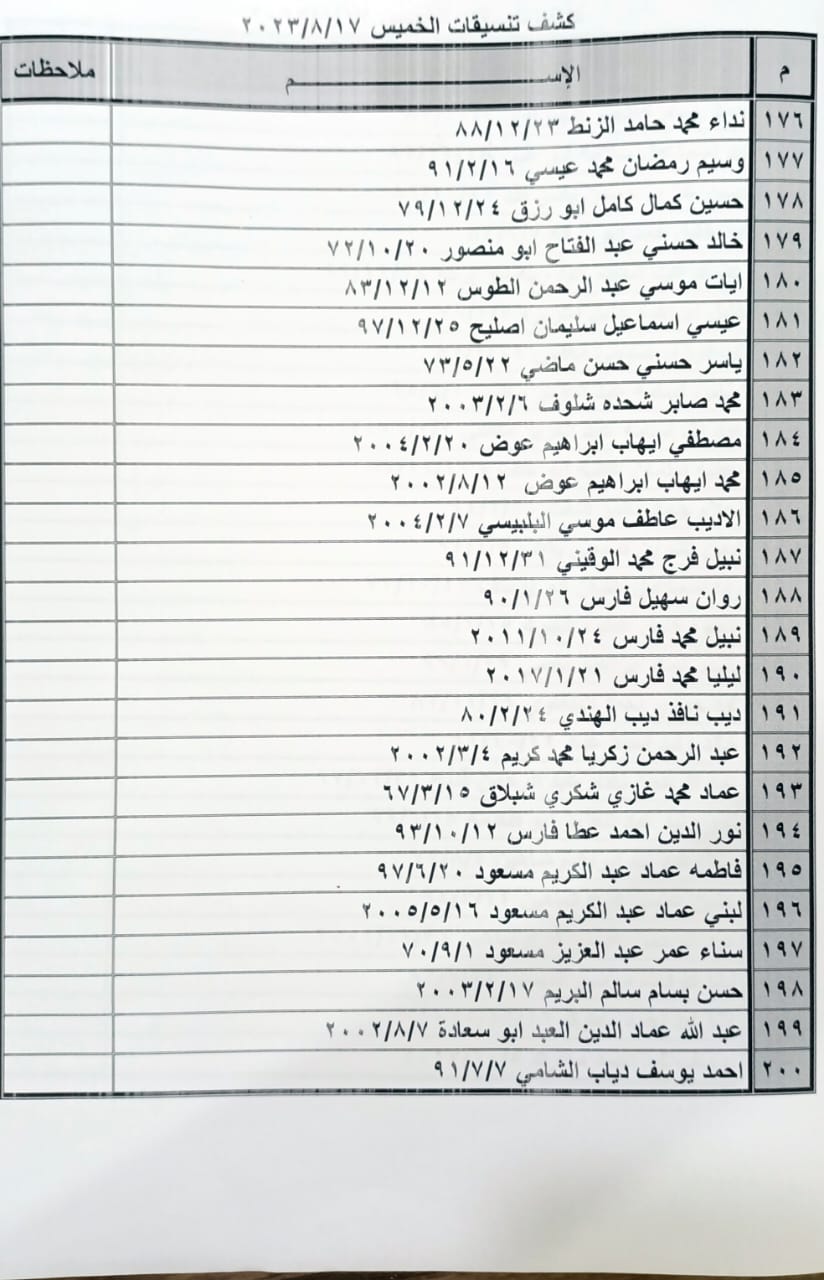 كشف تنسيقات الخميس ٢٠٢٣/٨/١٧
م الإســـــــم ملاحظات
١٧٦ نداء محمد حامد الزنط ٨٨/١٢/٢٣
١٧٧ وسيم رمضان محمد عيسي ٩١/٢/١٦
١٧٨ حسين كمال كامل ابو رزق ٧٩/١٢/٢٤
١٧٩ خالد حسني عبد الفتاح ابو منصور ٧٢/١٠/٢٠
١٨٠ ايات موسي عبد الرحمن الطوس ٨٣/١٢/١٢
١٨١ عيسي اسماعيل سليمان اصليح ٩٧/١٢/٢٥
١٨٢ ياسر حسني حسن ماضي ٧٣/٥/٢٢
١٨٣ محمد صابر شحده شلوف ٢٠٠٣/٢/٦
١٨٤ مصطفي ايهاب ابراهيم عوض ٢٠٠٤/٢/٢٠
١٨٥ محمد ايهاب ابراهيم عوض ٢٠٠٢/٨/١٢
١٨٦ الاديب عاطف موسي البلبيسي ٢٠٠٤/٢/٧
١٨٧ نبيل فرج محمد الوقيني ٩١/١٢/٣١
١٨٨ روان سهيل فارس ٩٠/١/٢٦
١٨٩ نبيل محمد فارس ٢٠١١/١٠/٢٤
١٩٠ ليليا محمد فارس ٢٠١٧/١/٢١
١٩١ ديب نافذ ديب الهندي ٨٠/٢/٢٤
١٩٢ عبد الرحمن زكريا محمد كريم ٢٠٠٢/٣/٤
١٩٣ عماد محمد غازي شكري شبلاق ٦٧/٣/١٥
١٩٤ نور الدين احمد عطا فارس ٩٣/١٠/١٢
١٩٥ فاطمه عماد عبد الكريم مسعود ٩٧/٦/٢٠
١٩٦ لبني عماد عبد الكريم مسعود ٢٠٠٥/٥/١٦
١٩٧ سناء عمر عبد العزيز مسعود ٧٠/٩/١
١٩٨ حسن بسام سالم البريم ٢٠٠٣/٢/١٧
١٩٩ عبد الله عماد الدين العبد ابو سعادة ٢٠٠٢/٨/٧
٢٠٠ احمد يوسف دياب الشامي ٩١/٧/٧